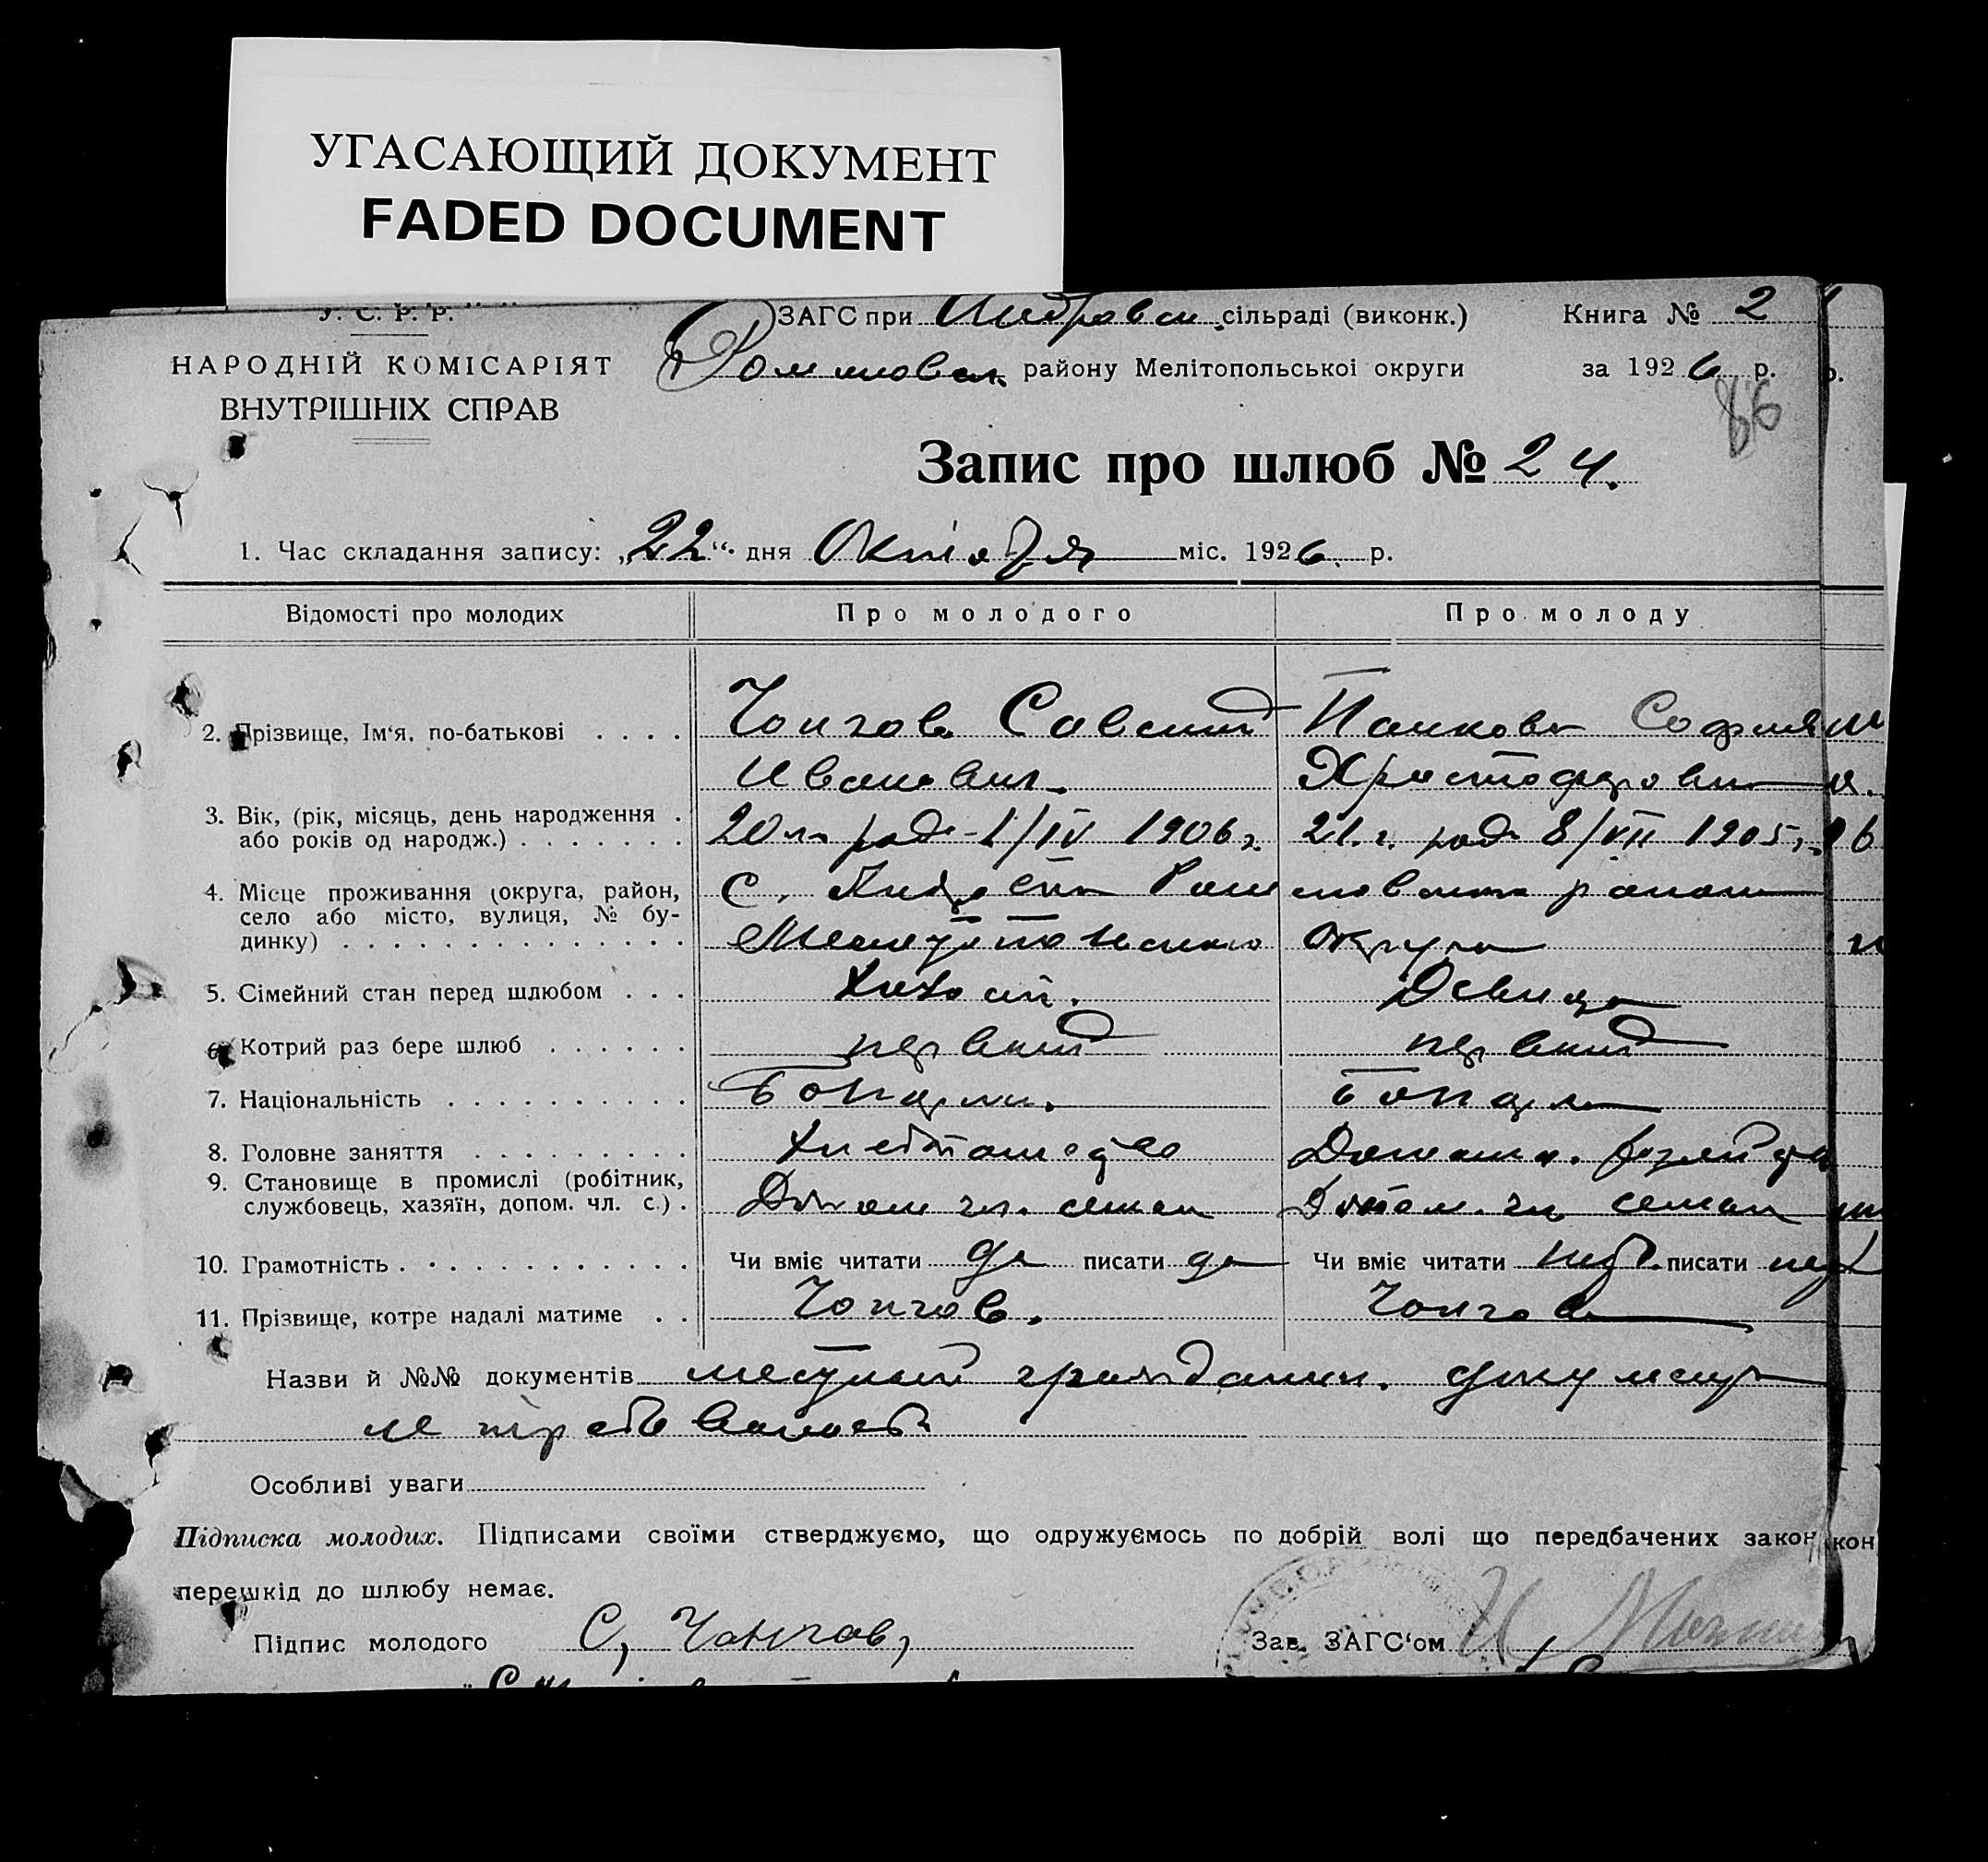 УГАСАЮЩИЙ ДОКУМЕНТ
FADED DOCUMENT
У. С. Р. Р.
ЗАГС при сільраді (виконк.) Книга № 2
НАРОДНІЙ КОМІСАРІЯТ
району Мелітопольської округи за 1926 р.
ВНУТРІШНІХ СПРАВ
86
Запис про шлюб № 24.
1. Час складання запису: „22“ дня Октября міс. 1926 р.
Відомості про молодих Про молодого Про молоду
2. Прізвище, Ім‘я, по-батькові . . . . Чолгов Савелий Панкова София
Иванович Христофоровна
3. Вік, (рік, місяць, день народження . або років од народж.) . . . . . . . 20 л. род. 1/IV 1906 г. 21 г. род 8/VII 1905 г.
4. Місце проживання (округа, район,
село або місто, вулиця, № бу-
динку) . . . . . . . . . . . . . . С. района
Мелитопольского округа
5. Сімейний стан перед шлюбом . . . Холост. Девица
6. Котрий раз бере шлюб . . . . . . первий первий
7. Національність . . . . . . . . . . Болгар. Болгарка
8. Головне заняття . . . . . . . . . Хлебопашество Домашн.
9. Становище в промислі (робітник,
службовець, хазяїн, допом. чл. с.) . Допом чл. семьи Допом. чл семьи
10. Грамотність . . . . . . . . . . . . Чи вміє читати да писати да Чи вміє читати нет. писати нет
11. Прізвище, котре надалі матиме . . Чолгов. Чолгова
Назви й №№ документів местний граждан. документ
не требовалось
Особливі уваги
Підписка молодих. Підписами своїми стверджуємо, що одружуємось по добрій волі що передбачених закон
перешкід до шлюбу немає.
Підпис молодого С, Чолгов, Зав. ЗАГС‘ом И.